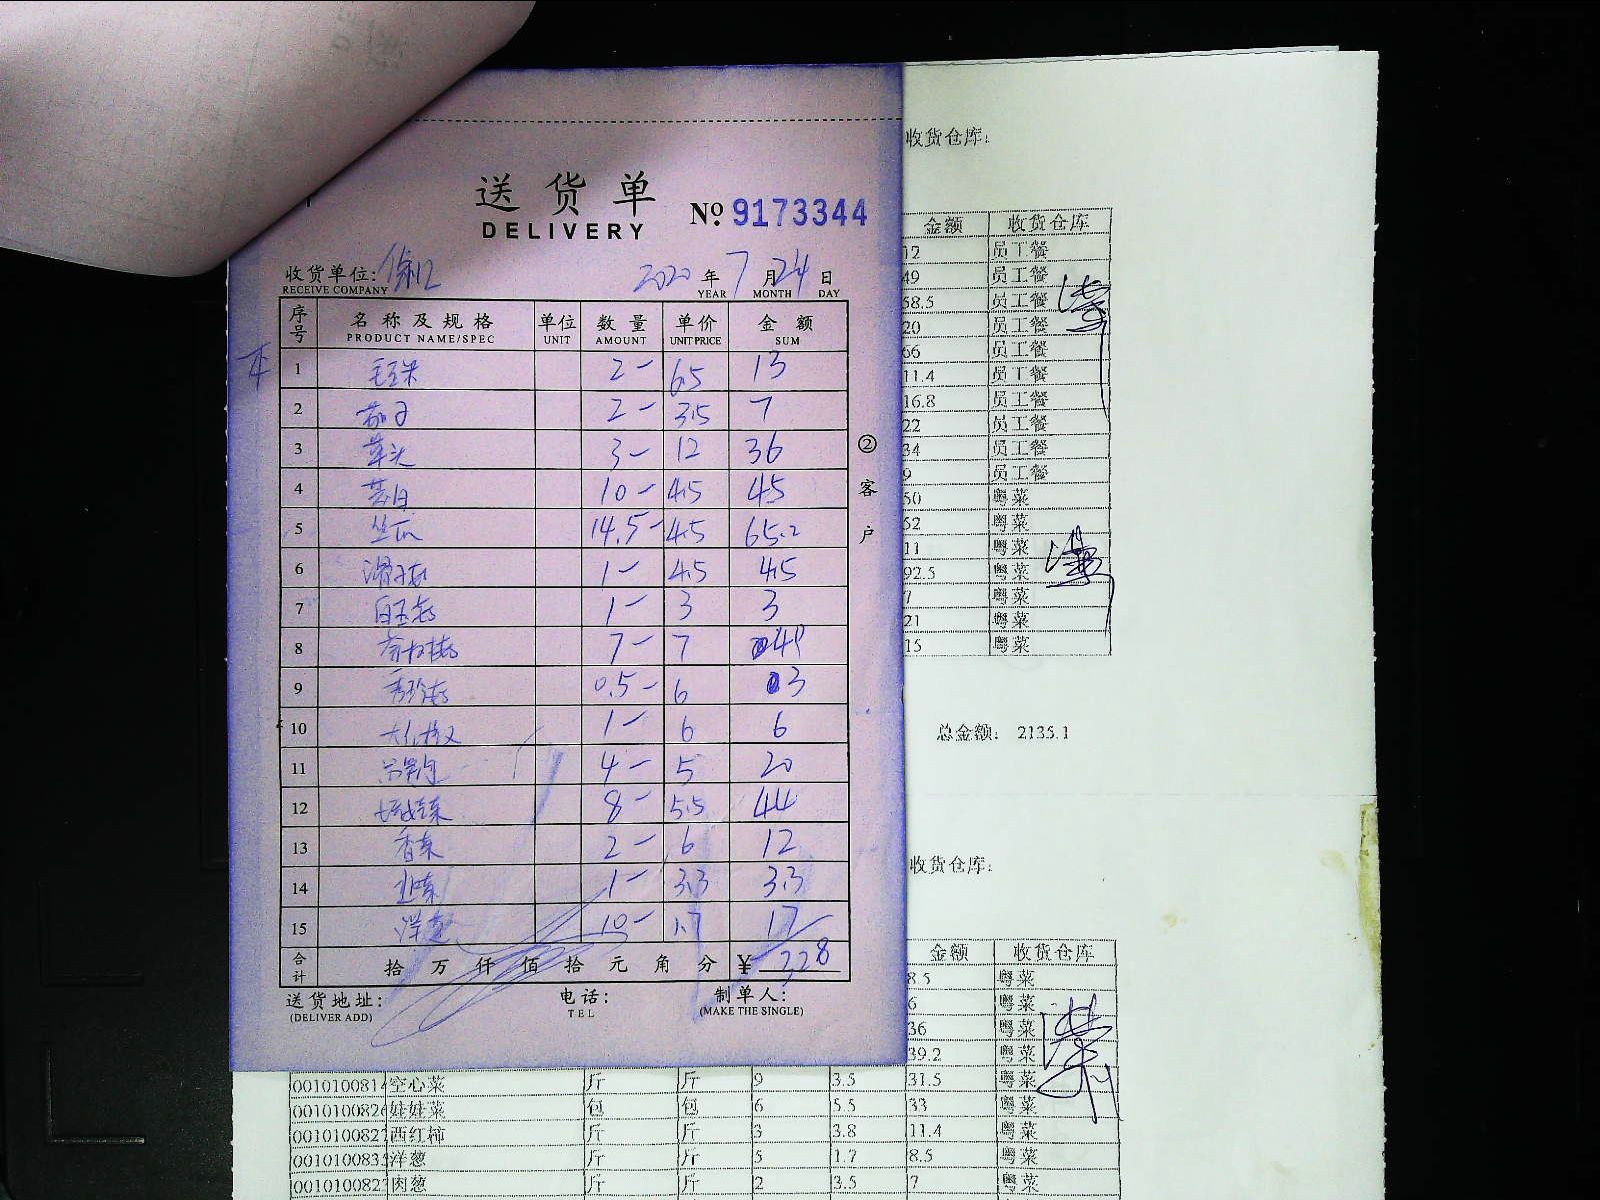 送货单
DELIVERY
№ 9173344
收货单位:
RECEIVE COMPANY
2020 年 7 月 24 日
YEAR MONTH DAY
序号 名称及规格 单位 数量 单价 金额
PRODUCT NAME/SPEC UNIT AMOUNT UNIT PRICE SUM
1 毛豆米 2- 6.5 13
2 茄子 2- 3.5 7
3 草头 3- 12 36
4 茭白 10- 4.5 45
5 丝瓜 14.5- 4.5 65.2
6 滑子菇 1- 4.5 4.5
7 白玉菇 1- 3 3
8 7- 7 49
9 秀珍菇 0.5- 6 3
10 1- 6 6
11 4- 5 20
12 娃娃菜 8- 5.5 44
13 香菜 2- 6 12
14 韭菜 1- 3.3 3.3
15 洋葱 10- 1.7 17
合计 拾 万 仟 佰 拾 元 角 分 ¥ 328
送货地址: 电话: 制单人:
(DELIVER ADD) TEL (MAKE THE SINGLE)
②客户
收货仓库:
金额 收货仓库
12 员工餐
49 员工餐
58.5 员工餐
20 员工餐
66 员工餐
11.4 员工餐
16.8 员工餐
22 员工餐
34 员工餐
9 员工餐
50 粤菜
52 粤菜
11 粤菜
92.5 粤菜
7 粤菜
21 粤菜
15 粤菜
总金额: 2135.1
收货仓库:
金额 收货仓库
8.5 粤菜
6 粤菜
36 粤菜
39.2 粤菜
0010100814 空心菜 斤 斤 9 3.5 31.5 粤菜
0010100826 娃娃菜 包 包 6 5.5 33 粤菜
001010082 西红柿 斤 斤 3 3.8 11.4 粤菜
001010083 洋葱 斤 斤 5 1.7 8.5 粤菜
001010082 肉葱 斤 斤 2 3.5 7 粤菜